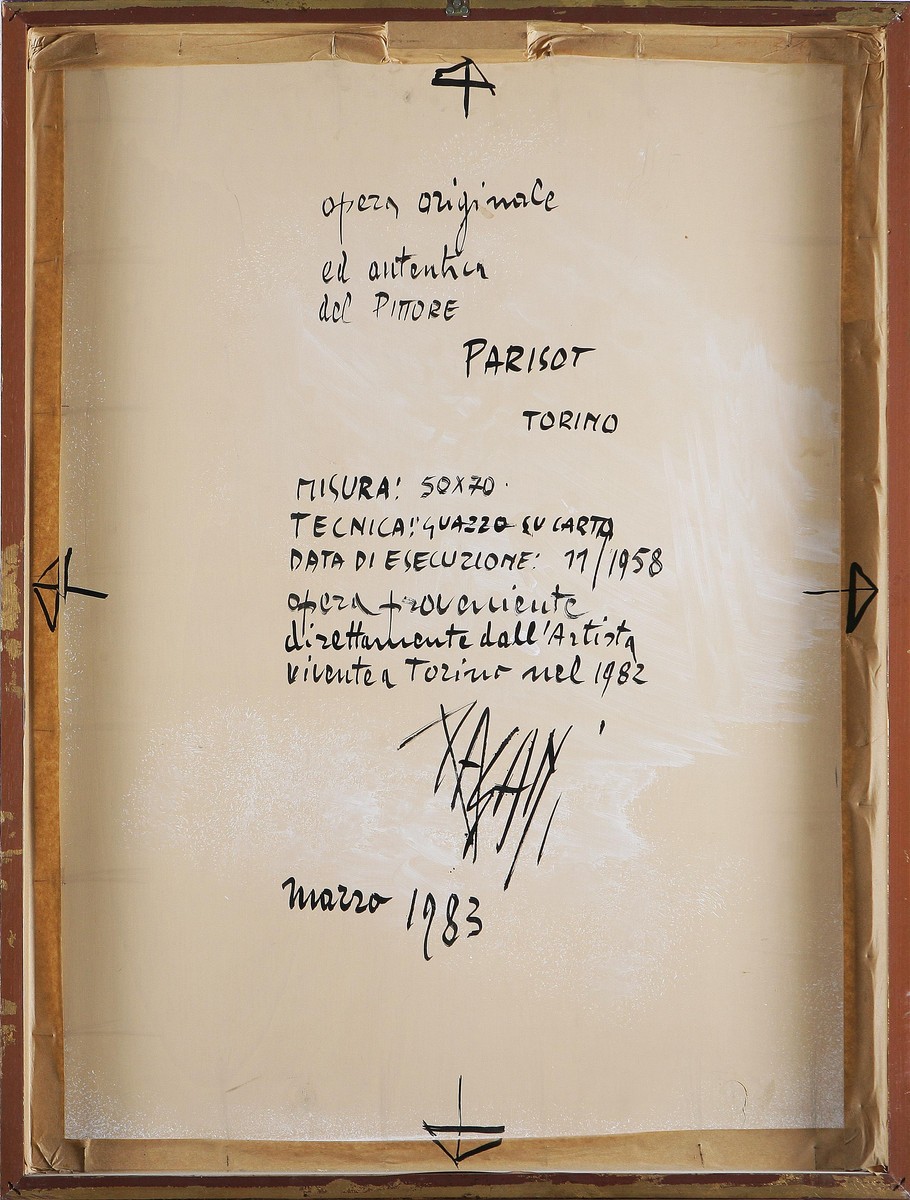 opera originale
ed autentica
del PITTORE
PARISOT
TORINO
MISURA: 50X70.
TECNICA: GUAZZO SU CARTA
DATA DI ESECUZIONE: 11/1958
opera proveniente
direttamente dall'Artista
vivente a Torino nel 1982
marzo 1983